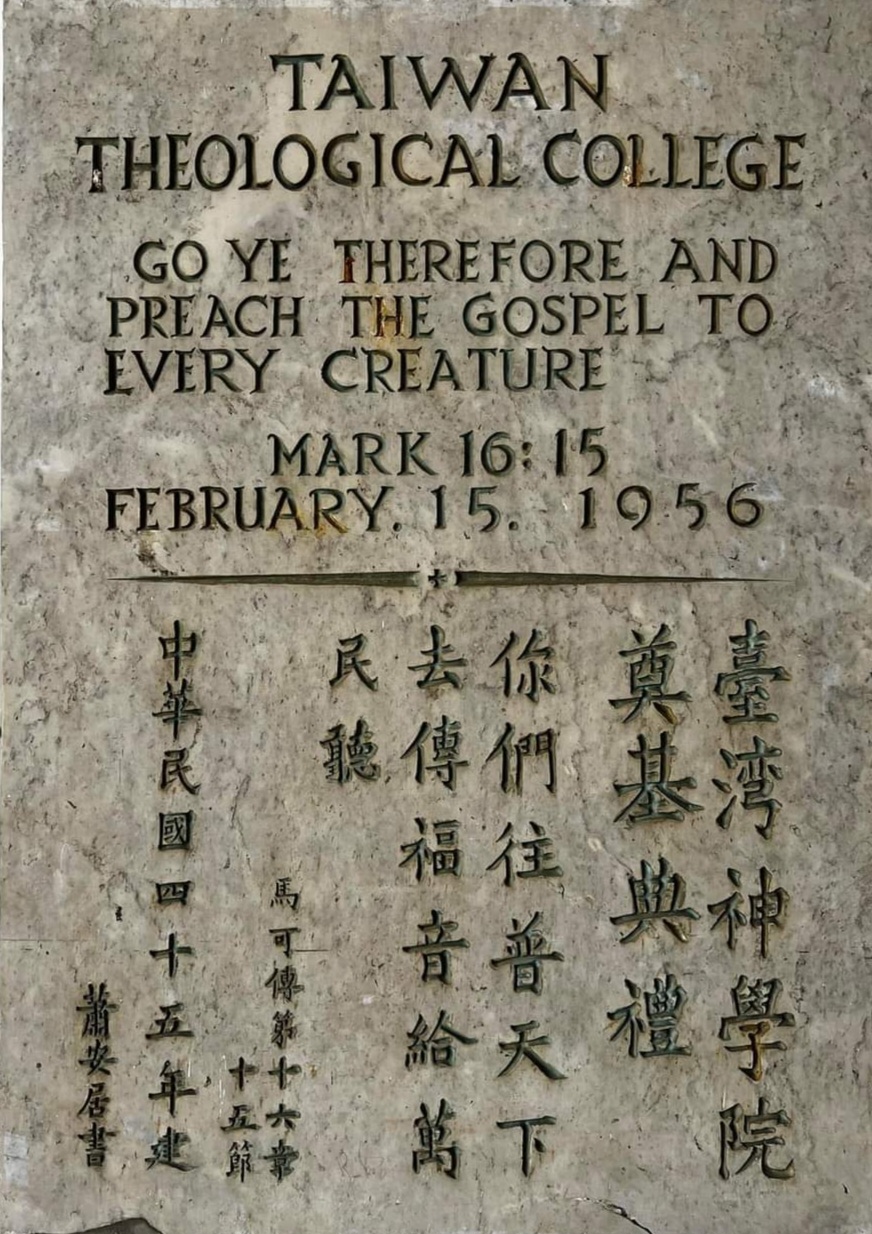 TAIWAN
THEOLOGICAL COLLEGE
GO YE THEREFORE AND
PREACH THE GOSPEL TO
EVERY CREATURE
MARK 16:15
FEBRUARY. 15. 1956
臺湾神學院
奠基典禮
你們往普天下
去傳福音給萬
民聽
馬可傳第十六章
十五節
中華民國四十五年建
蕭安居書